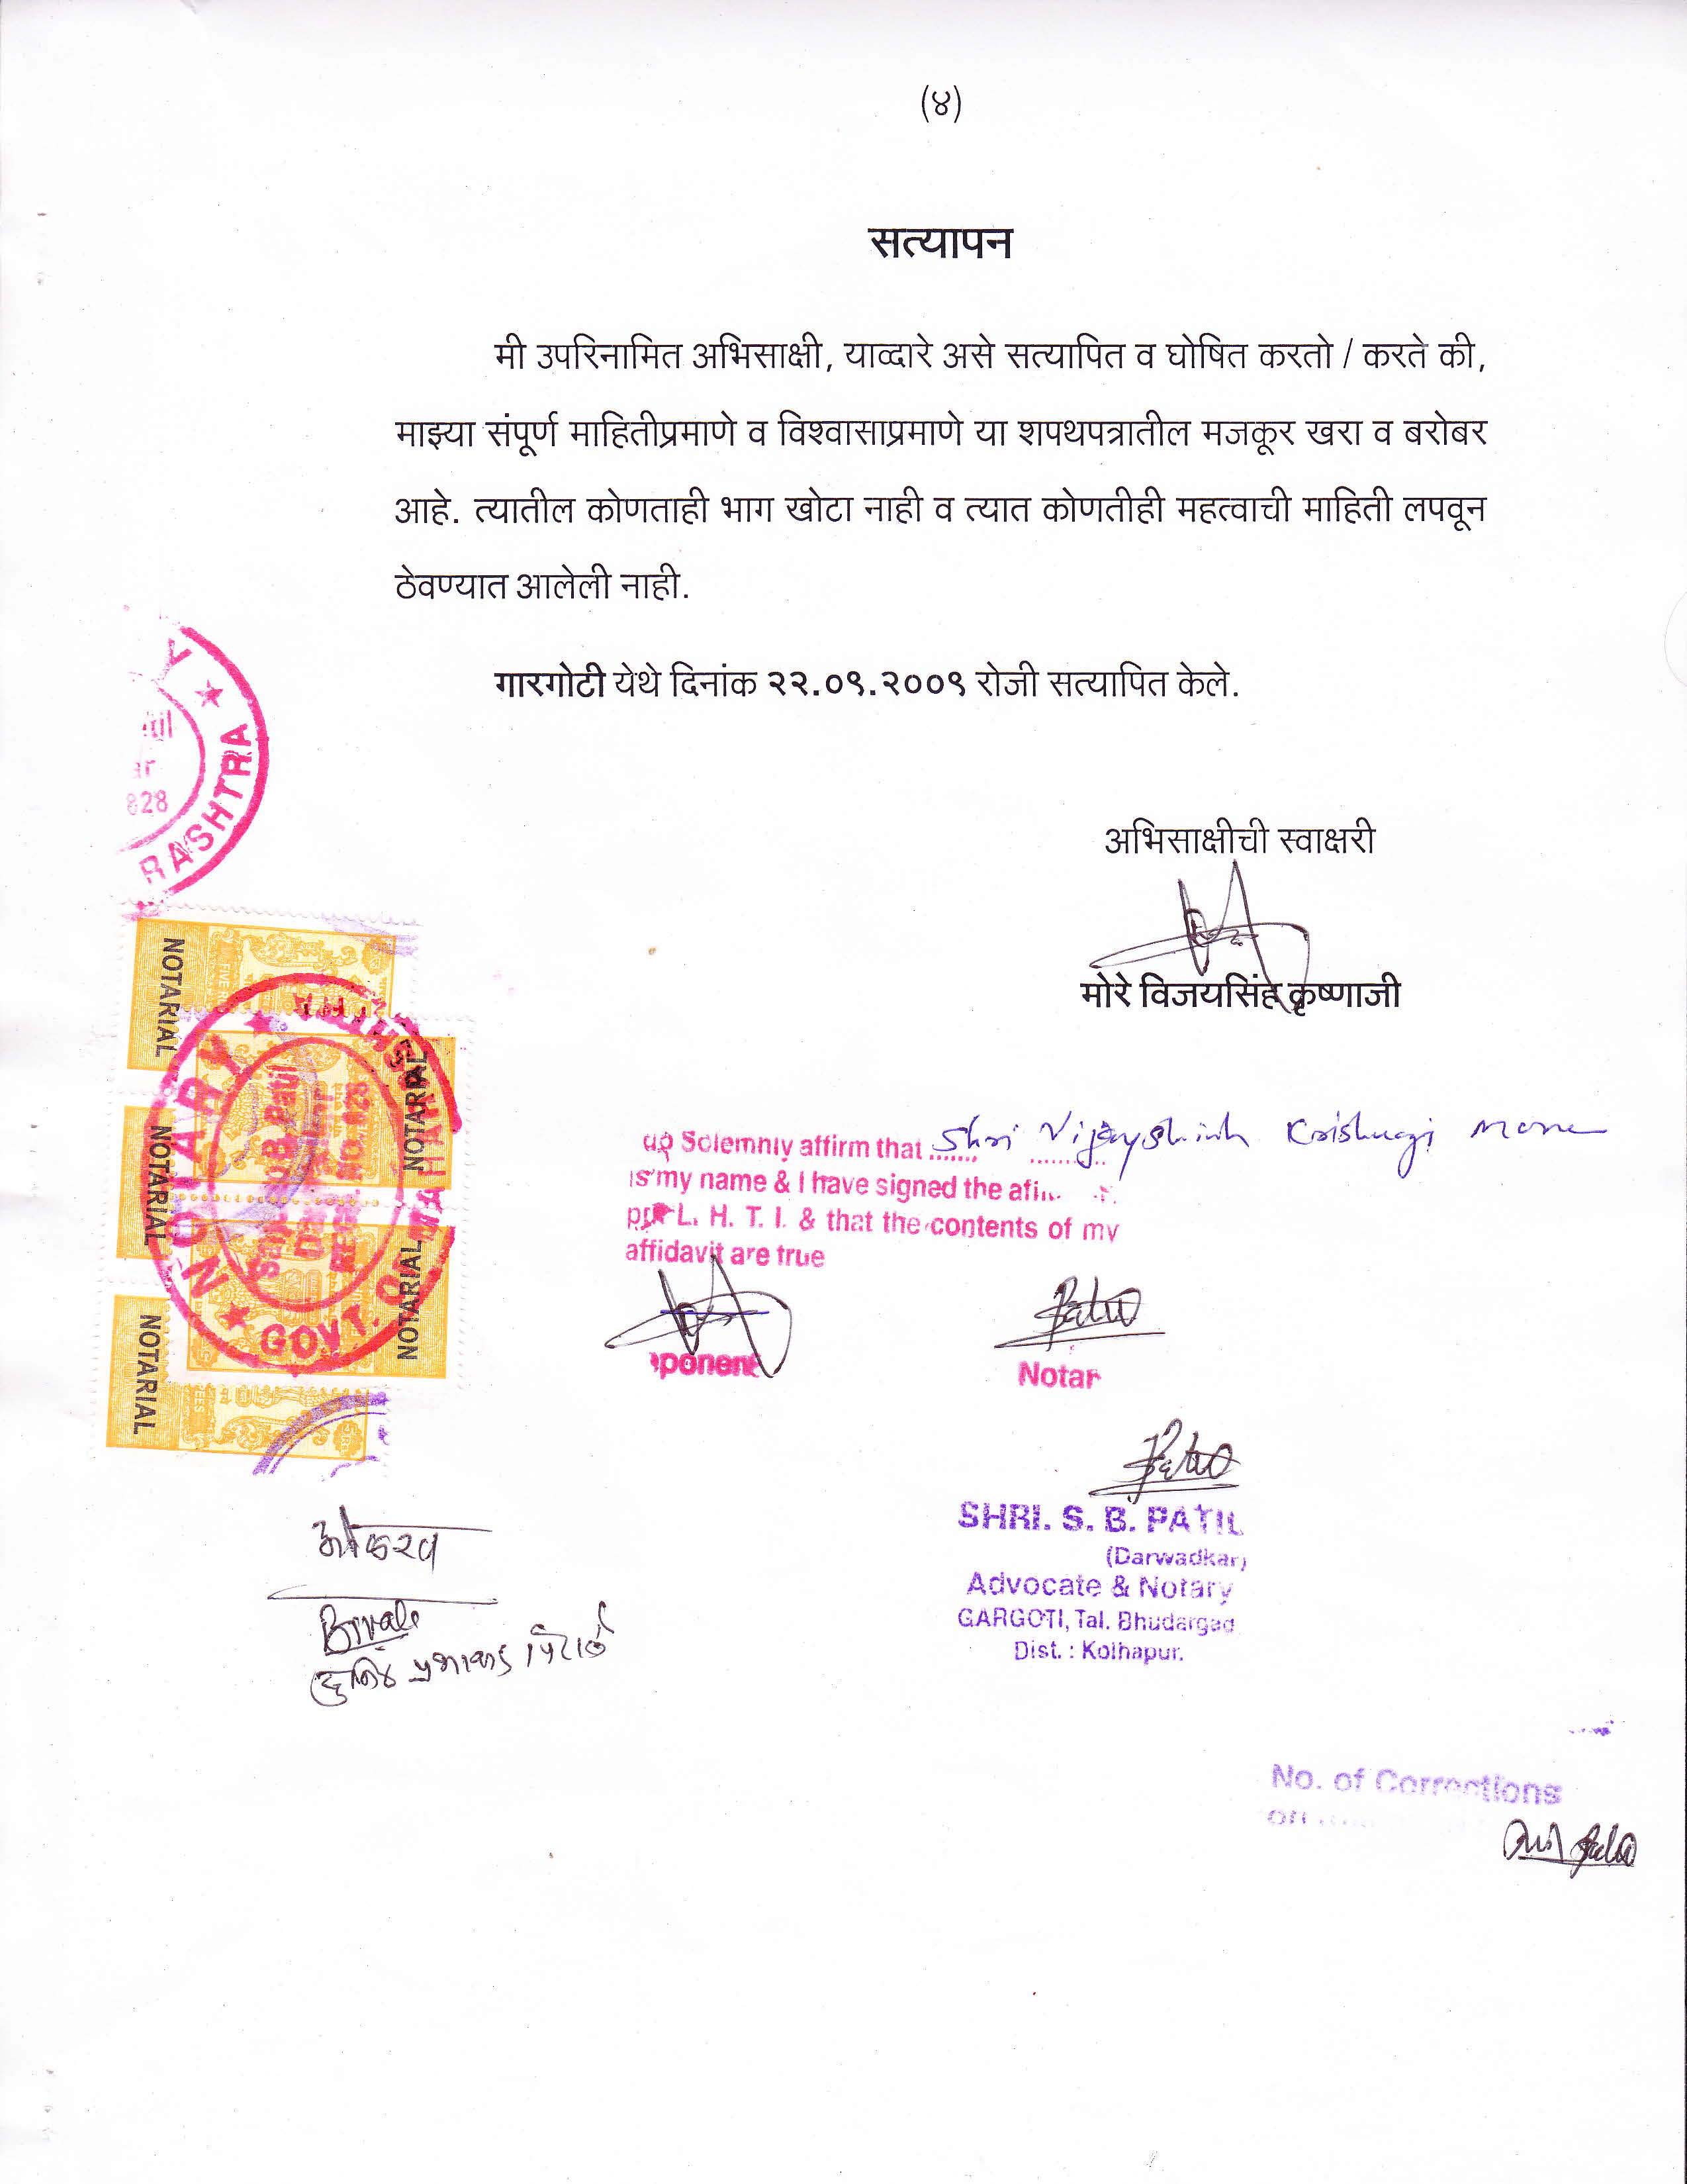 (४)
सत्यापन
मी उपरिनामित अभिसाक्षी, याव्दारे असे सत्यापित व घोषित करतो / करते की,
माझ्या संपूर्ण माहितीप्रमाणे व विश्वासाप्रमाणे या शपथपत्रातील मजकूर खरा व बरोबर
आहे. त्यातील कोणताही भाग खोटा नाही व त्यात कोणतीही महत्वाची माहिती लपवून
ठेवण्यात आलेली नाही.
गारगोटी येथे दिनांक २२.०९.२००९ रोजी सत्यापित केले.
828
RASHTRA
अभिसाक्षीची स्वाक्षरी
मोरे विजयसिंह कृष्णाजी
NOTARIAL
NOTARIAL
NOTARIAL
NOTARIAL
NOTARIAL
NOTARY
GOVT. OF
Solemnly affirm that Shri Vijayshinh Krishnaji More
is my name & I have signed the
L. H. T. I. & that the contents of my
affidavit are true
ponent
Notar
SHRI. S. B. PATIL
(Darwadkar)
Advocate & Notary
GARGOTI, Tal. Bhudargad
Dist. : Kolhapur.
ओळखव
No. of Corrections
on